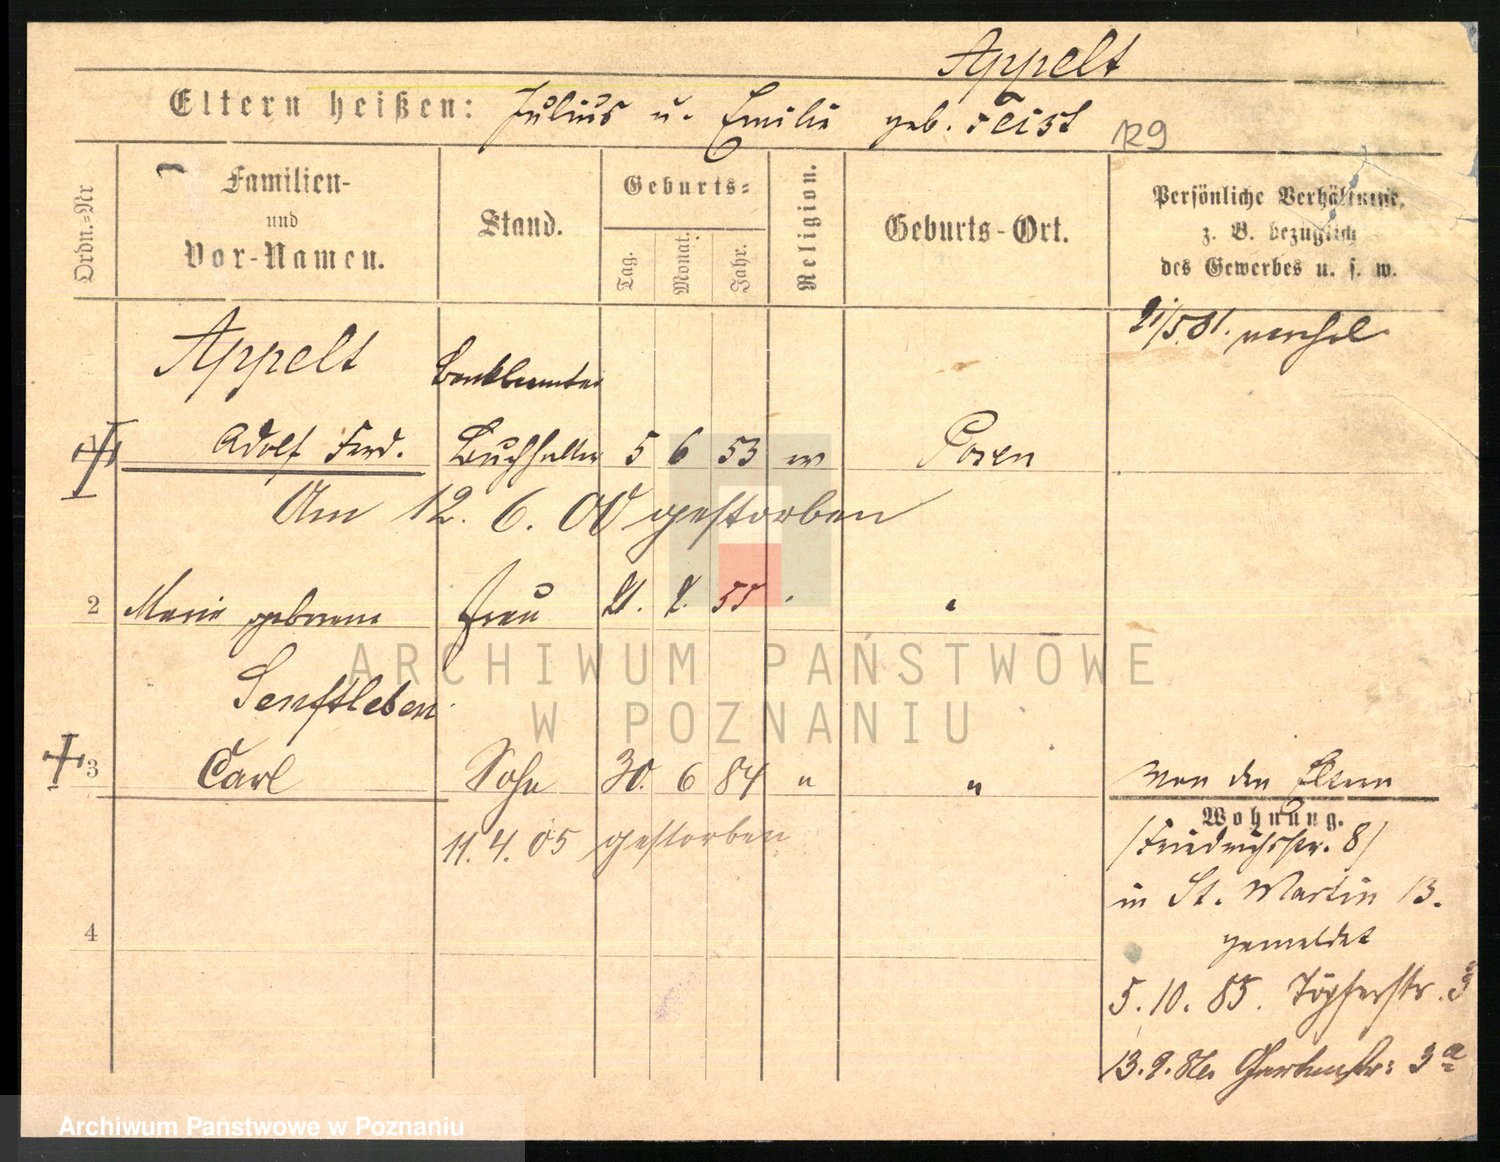 Appelt
Eltern heißen: Julius u. Emilie geb. Feist 129
Ordn.=Nr
Familien-
und
Vor-Namen.
Stand.
Geburts=
Tag.
Monat.
Jahr.
Religion.
Geburts-Ort.
Persönliche Verhältnisse,
z. B. bezüglich
des Gewerbes u. s. w.
Appelt
Adolf Ferd. Buchhalter 5 6 53 Posen
Am 12. 6. 00 gestorben
2 Marie geborene Frau 55
Senftleben
3 Carl Sohn 30. 6 84 " "
von den Eltern
Wohnung.
11. 4. 05 gestorben
(Friedrichsstr. 8)
in St. Martin 13.
gemeldet
4
5. 10. 85. Töpferstr. 3
13. 9. Gartenstr: 3a
ARCHIWUM PAŃSTWOWE
W POZNANIU
Archiwum Państwowe w Poznaniu